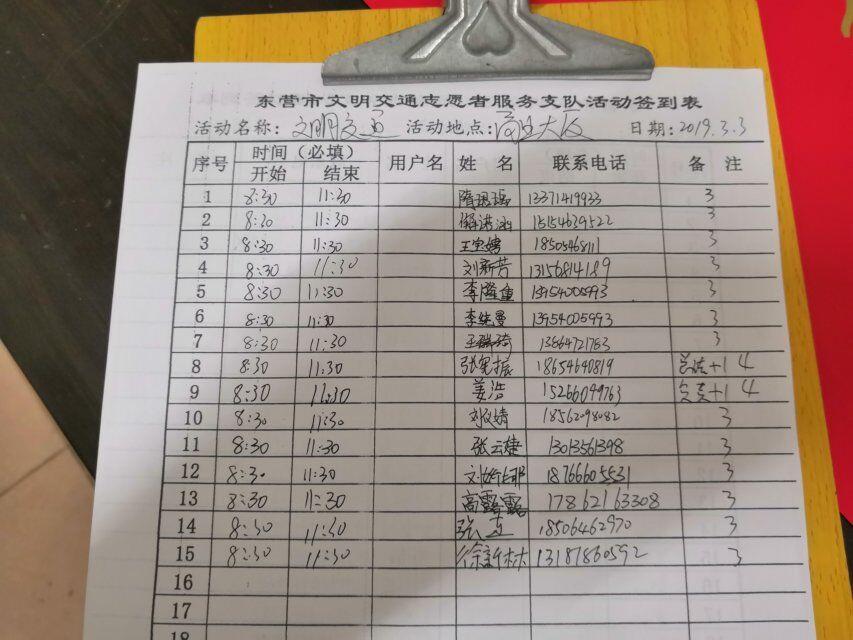 东营市文明交通志愿者服务支队活动签到表
活动名称：文明交通 活动地点：商业大厦 日期：2019.3.3
序号 时间（必填） 用户名 姓名 联系电话 备注
开始 结束
1 8:30 11:30 13371419933 3
2 8:30 11:30 15154639522 3
3 8:30 11:30 18505468111 3
4 8:30 11:30 刘新芳 13156814189 3
5 8:30 11:30 13954005993 3
6 8:30 11:30 13954005993 3
7 8:30 11:30 13864721763 3
8 8:30 11:30 18654640819 +1 4
9 8:30 11:30 姜浩 15266099763 +1 4
10 8:30 11:30 18562098082 3
11 8:30 11:30 张云婕 13013561398 3
12 8:30 11:30 18766605531 3
13 8:30 11:30 高露露 17862163308 3
14 8:30 11:30 18506462970 3
15 8:30 11:30 徐新林 13187860592 3
16
17
18